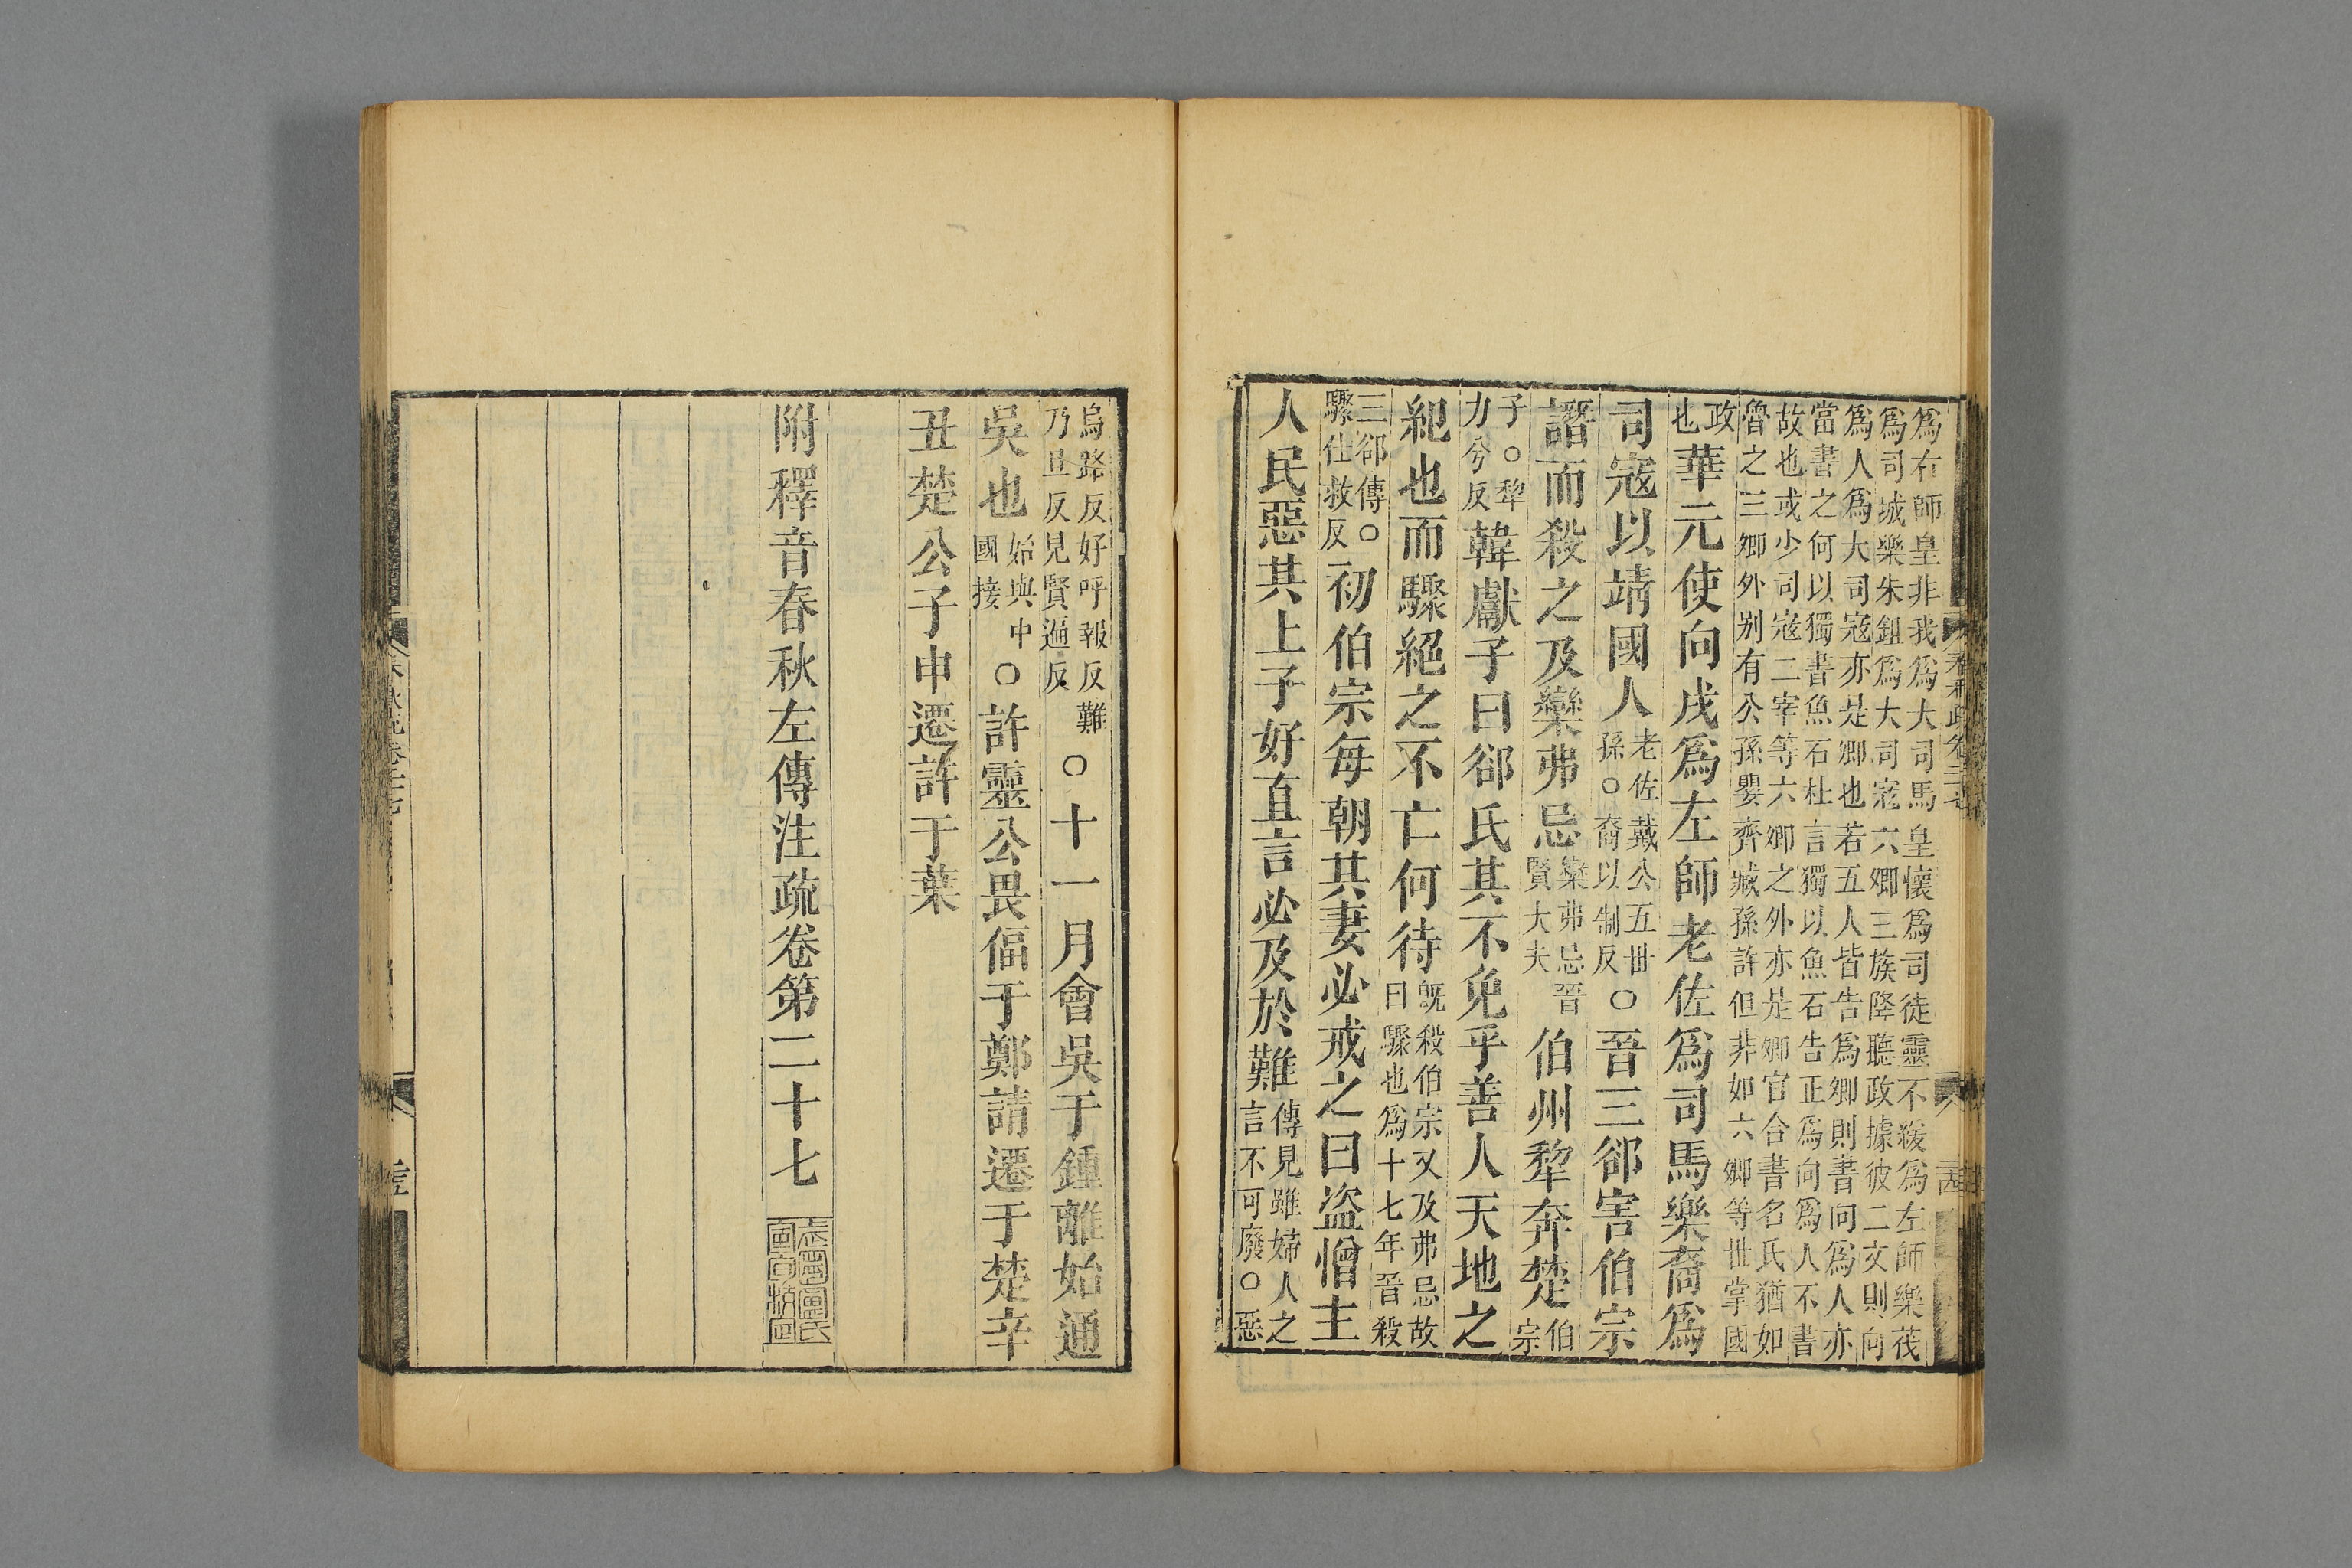 爲右師皇非我爲大司馬皇懷爲司徒靈不緩爲左師樂茷
爲司城樂朱鉏爲大司寇六卿三族降聽政據彼二文則向
爲人爲大司寇亦是卿也若五人皆告爲卿則書向爲人亦
當書之何以獨書魚石杜言獨以魚石告正爲向爲人不書
故也或少司寇二宰等六卿之外亦是卿官合書名氏猶如
魯之三卿外别有公孫嬰齊臧孫許但非如六卿等世掌國
政
也
華元使向戌爲左師老佐爲司馬樂裔爲
司寇以靖國人
老佐戴公五世
孫○裔以制反
○晉三郤害伯宗
譖而殺之及欒弗忌
欒弗忌晉
賢大夫
伯州犂奔楚
伯
宗
子○犂
力兮反
韓獻子曰郤氏其不免乎善人天地之
紀也而驟絕之不亡何待
旣殺伯宗又及弗忌故
曰驟也爲十七年晉殺
三郤傳○
驟仕救反
初伯宗每朝其妻必戒之曰盜憎主
人民惡其上子好直言必及於難
傳見雖婦人之
言不可廢○惡
烏路反好呼報反難
乃旦反見賢遍反
○十一月會吳于鍾離始通
吳也
始與中
國接
○許靈公畏偪于鄭請遷于楚辛
丑楚公子申遷許于葉
附釋音春秋左傳注疏卷第二十七